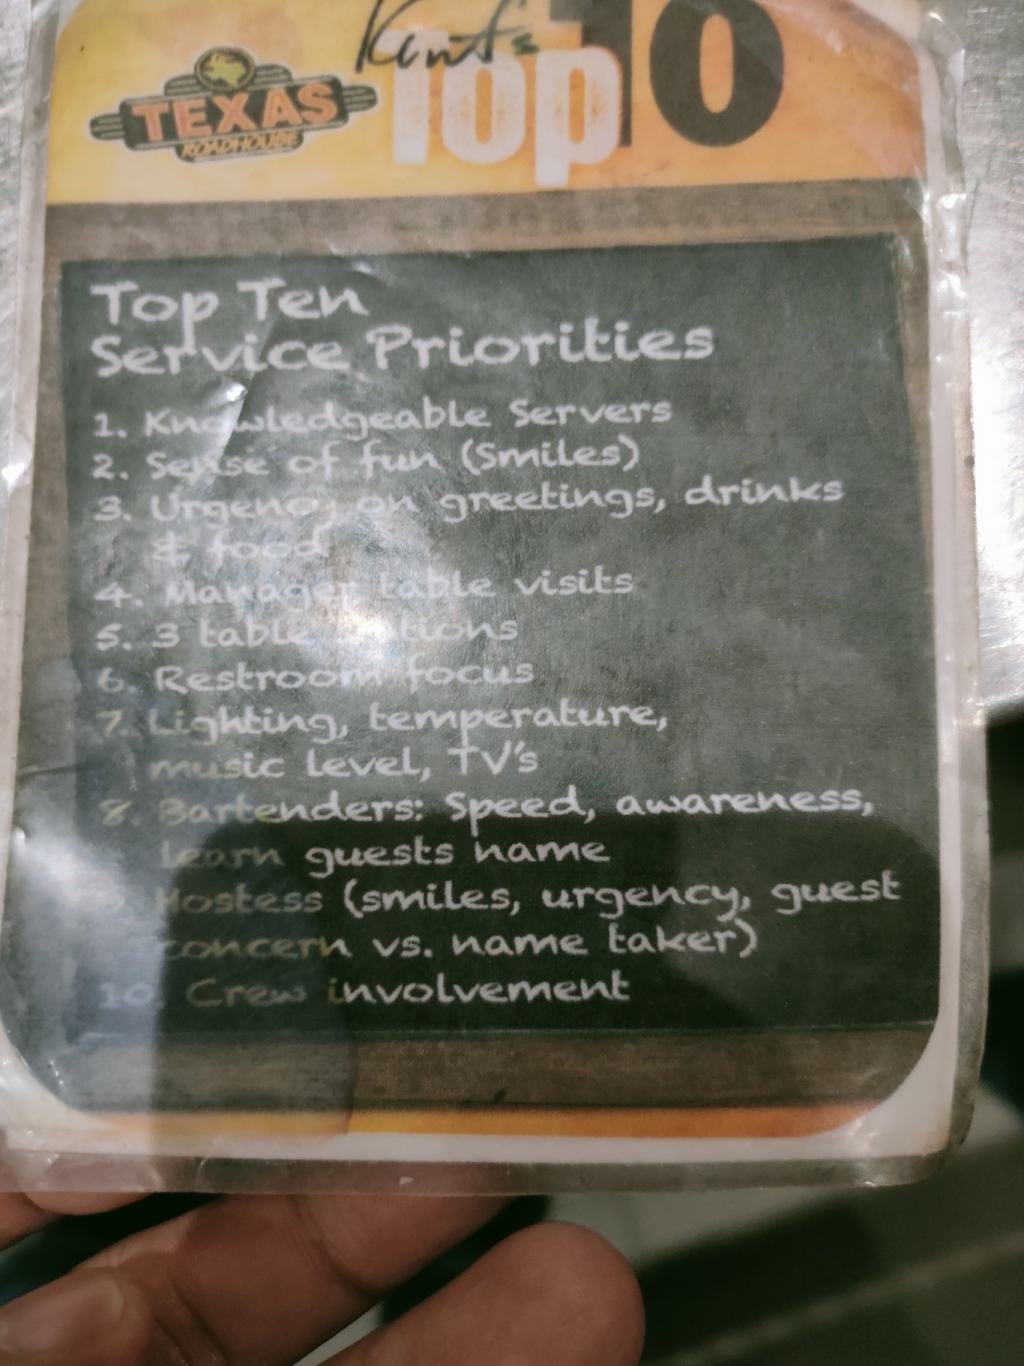 Kent's
Top 10
TEXAS
ROADHOUSE
Top Ten
Service Priorities
1. Knowledgeable Servers
2. Sense of fun (Smiles)
3. Urgency on greetings, drinks
& food
4. Manager table visits
5. 3 table stations
6. Restroom focus
7. Lighting, temperature,
music level, TV's
8. Bartenders: Speed, awareness,
learn guests name
9. Hostess (smiles, urgency, guest
concern vs. name taker)
10. Crew involvement